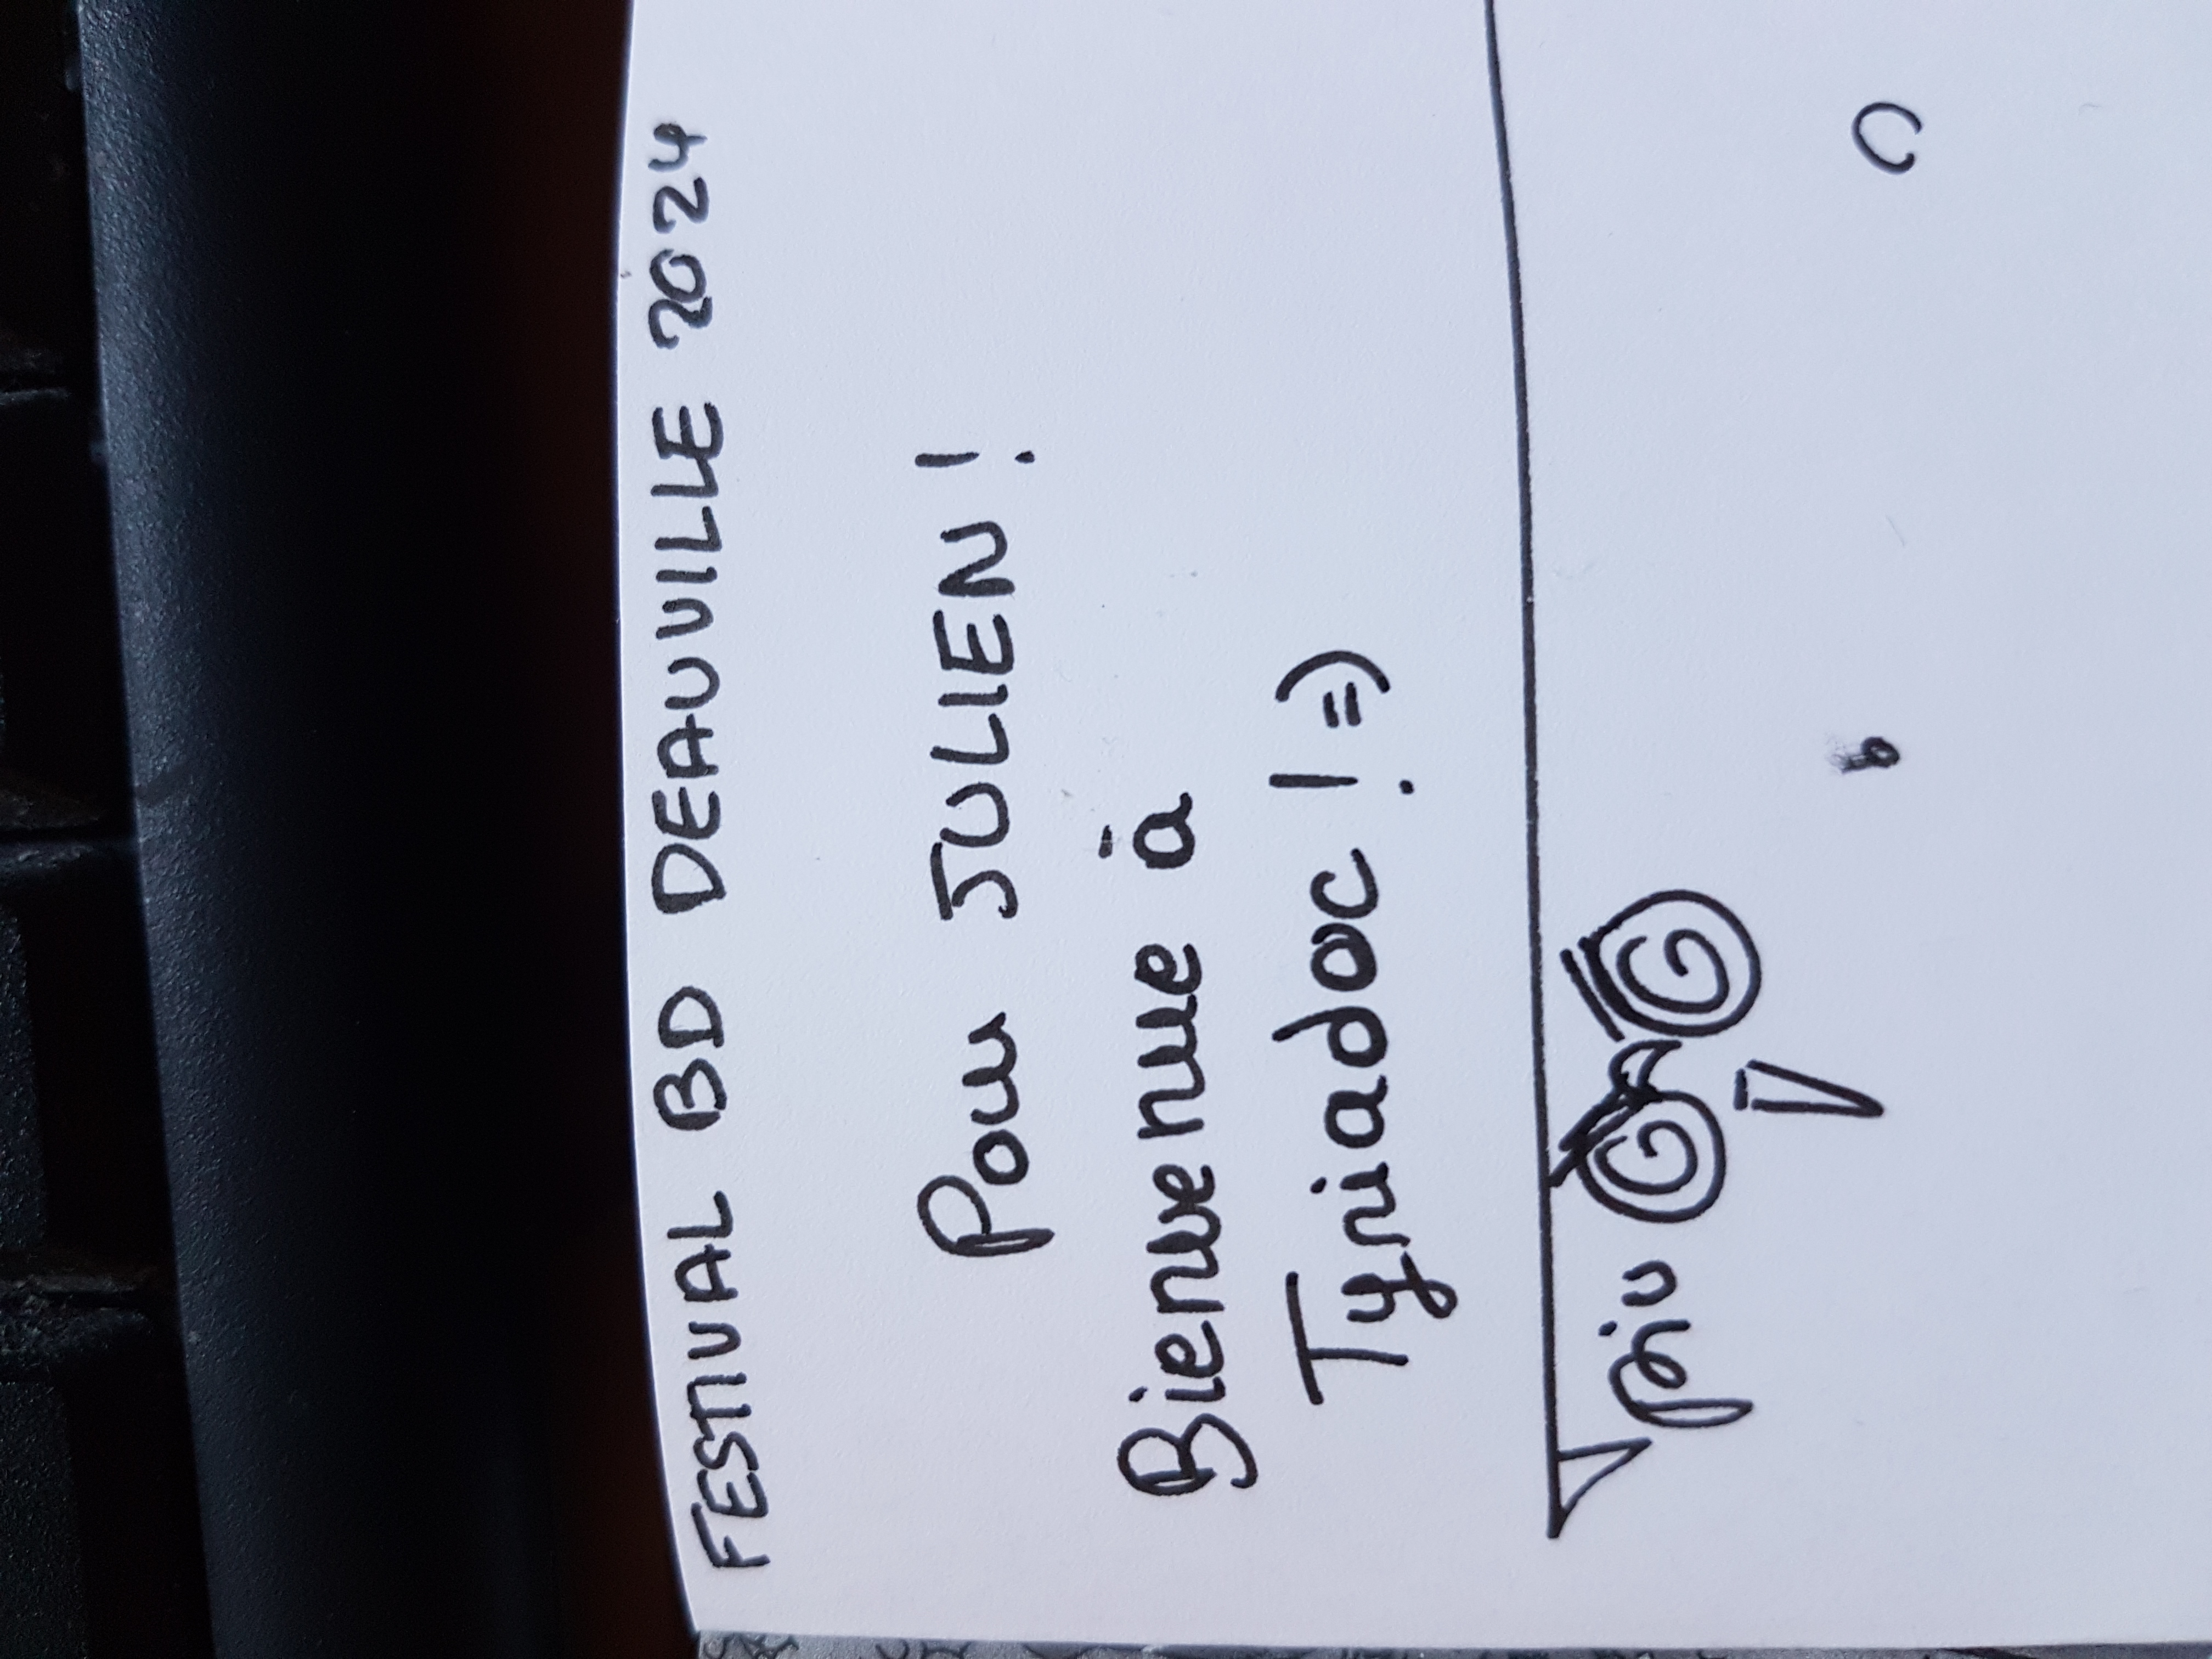 FESTIVAL BD DEAUVILLE 2024
Pour JULIEN !
Bienvenue à
Tyriadoc ! =)